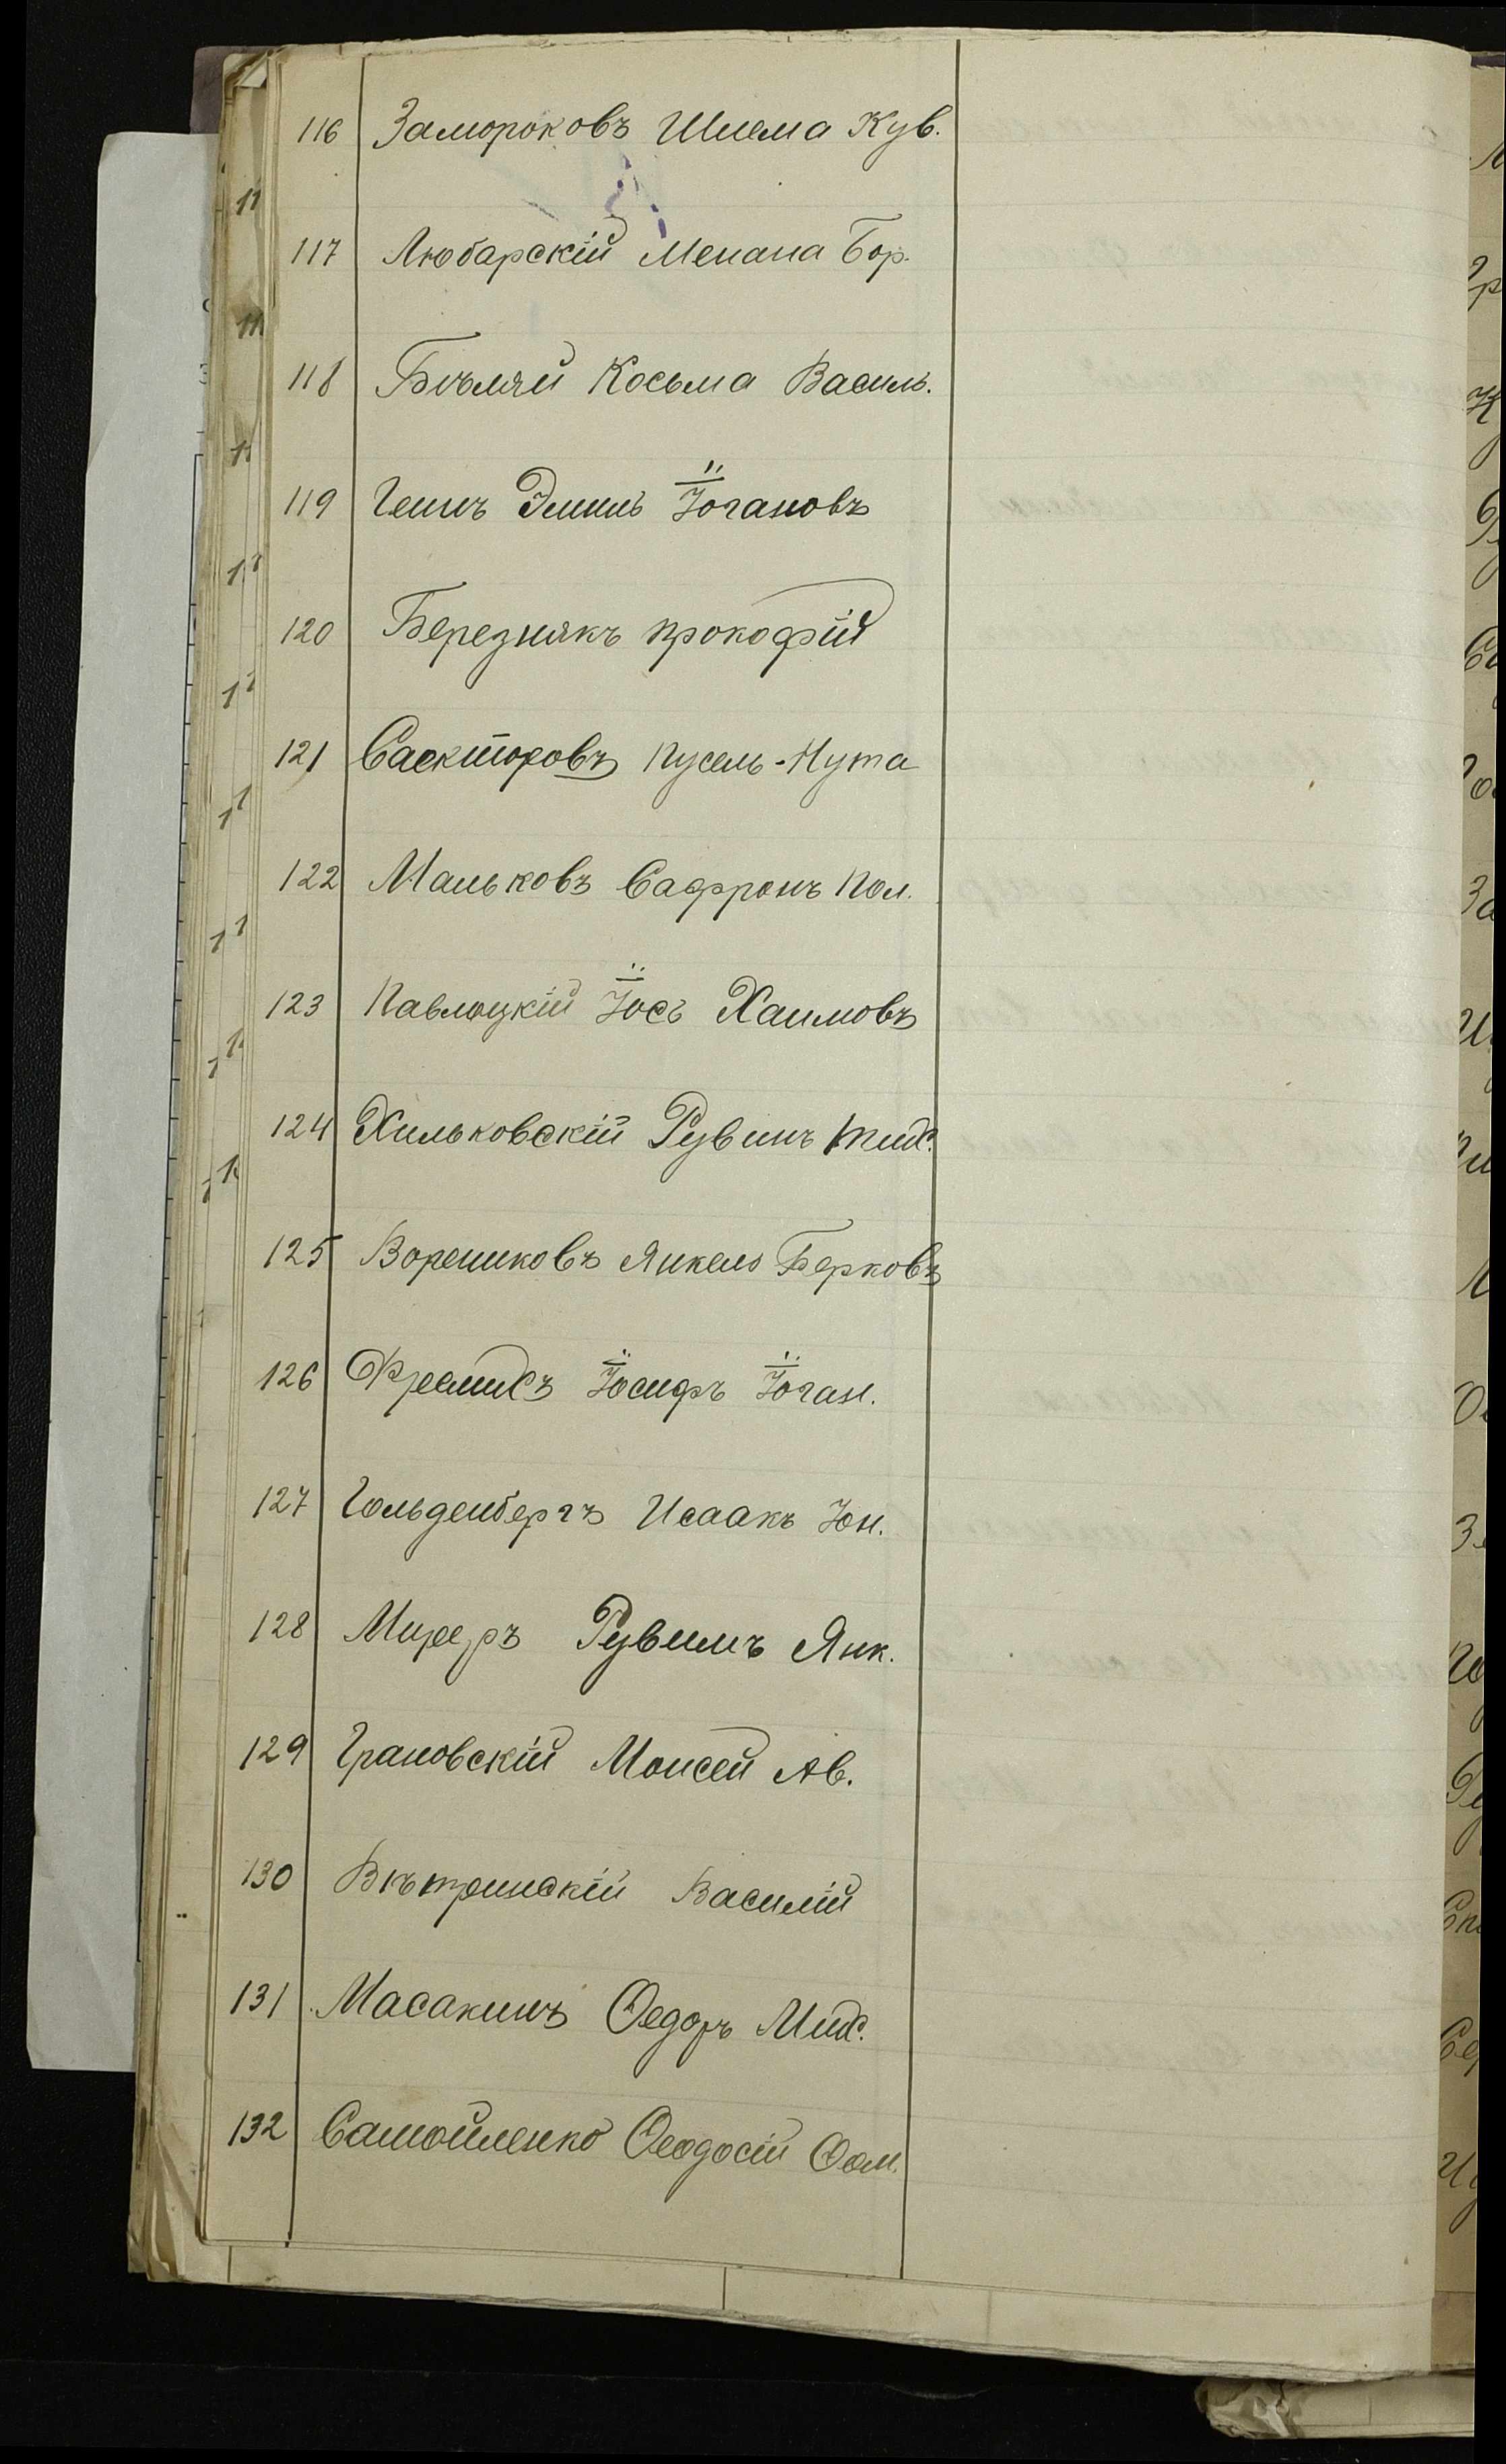 116 Замороковъ Шлема Кув.
117 Любарскій Менаша Бор.
118 Бѣляй Косьма Василь.
119 Геинъ Эмиль Іогановъ
120 Березнякъ Прокофій
121 Саекторовъ Нусель-Нута
122 Мальковъ Сафронъ Пол.
123 Павлоцкій Іось Хаимовъ
124 Хильковскій Рувинъ Мих.
125 Ворениковъ Янкель Берковъ
126 Фрелихъ Іосифъ Іоган.
127 Гольденбергъ Исаакъ Іон.
128 Мирер Рувимъ Янк.
129 Грановскій Моисей Ав.
130 Вѣтринскій Василій
131 Масакинъ Ѳедоръ Мих.
132 Самойленко Ѳеодосій Ѳом.